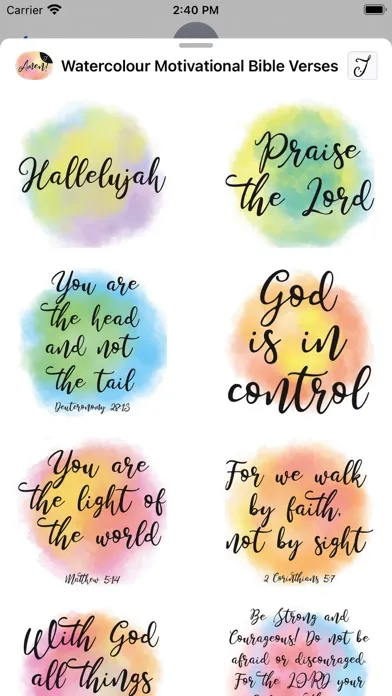 Carrier 2:40 PM
Amen! Watercolour Motivational Bible Verses J
Hallelujah
Praise
the Lord
You are
the head
and not
the tail
Deuteronomy 28:13
God
is in
control
You are
the light of
the world
Matthew 5:14
For we walk
by faith,
not by sight
2 Corinthians 5:7
With God
all things
Be Strong and
Courageous! Do not be
afraid or discouraged.
For the LORD your